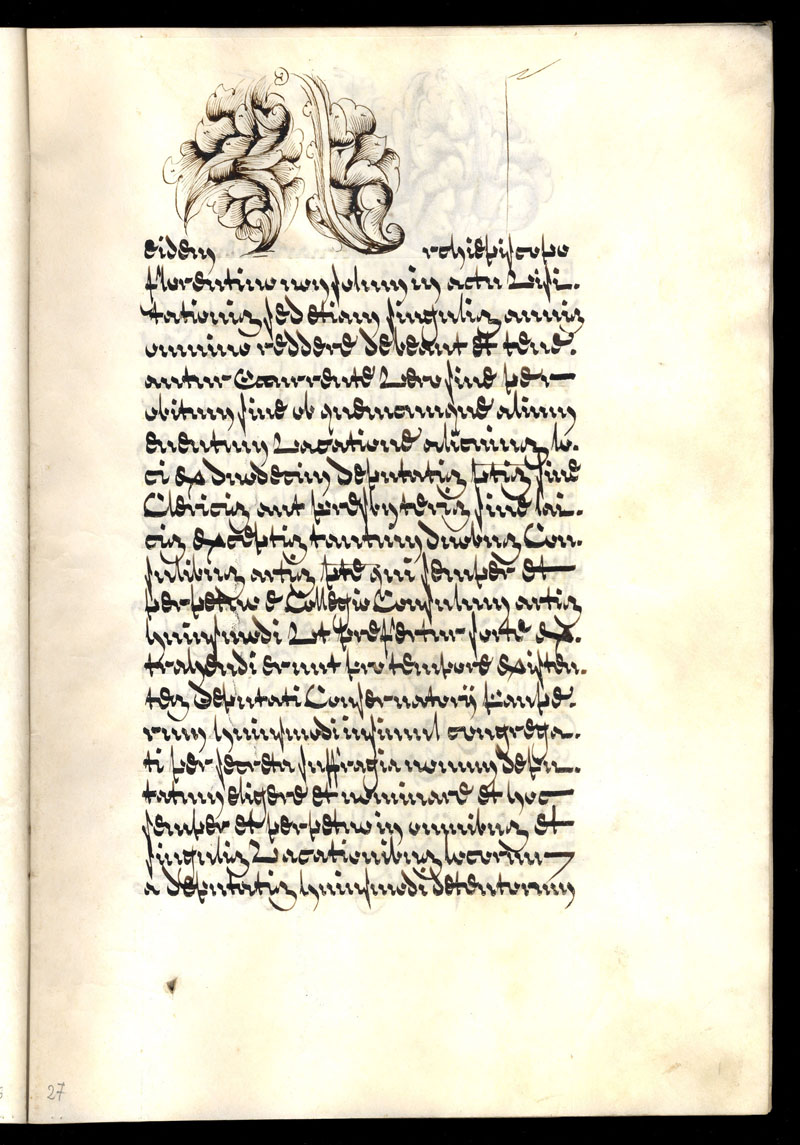 eidem Archiepiscopo
florentino non solum in actu Visi-
tationis sed etiam singulis annis
omnino reddere debeant et tene-
antur Occurrente Vero sine per
obitum sine ob quemcumque alium
euentum Vacatione alicuius lo-
ci ex duodecim deputatis ptis siue
Clericis aut presbyteris siue lai-
cis exceptis tantum duobus Con-
sulibus artis pte qui semper et
perpetuo e Collegio Consulum artis
huiusmodi Vt prefertur sorte ex-
trahendi erunt pro tempore existen-
tes deputati Conseruatorij Paupe-
rum huiusmodi insimul congrega-
ti per secreta suffragia nouum depu-
tatum eligere et nominare et hoc
semper et perpetuo in omnibus et
singulis Vacationibus locorum
a deputatis huiusmodi detentorum
27